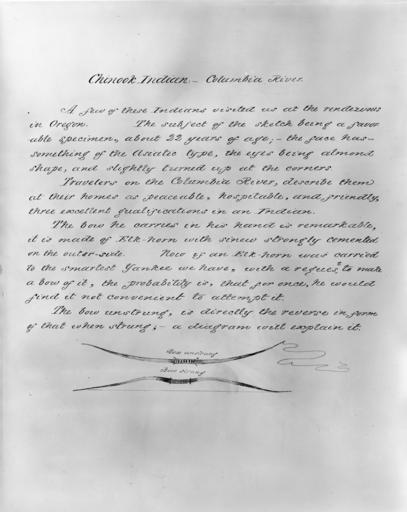 Chinook Indian – Columbia River.
A few of these Indians visited us at the rendezvous
in Oregon. The subject of the sketch being a favor
able specimen, about 22 years of age; – the face has
something of the Asiatic type, the eyes being almond
shape, and slightly turned up at the corners.
Travelers on the Columbia River, describe them
at their homes as peaceable, hospitable, and friendly,
three excellent qualifications in an Indian.
The bow he carries in his hand is remarkable,
it is made of Elk-horn with sinew strongly cemented
on the outer-side. Now if an Elk horn was carried
to the smartest Yankee we have, with a request to make
a bow of it, the probability is, that for once, he would
find it not convenient to attempt it.
The bow unstrung, is directly the reverse in form
of that when strung; – a diagram will explain it.
Bow unstrung
Bow strung